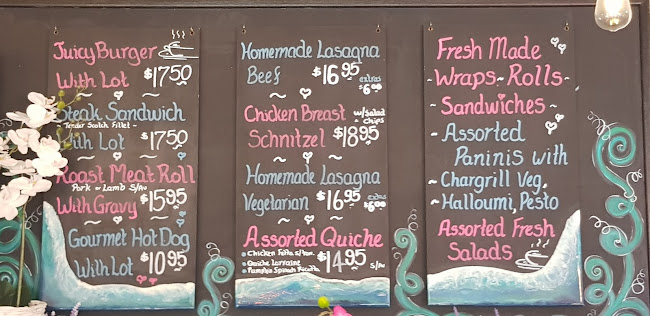 Juicy Burger
With Lot $17.50
Steak Sandwich
- Tender Scotch Fillet -
With Lot $17.50
Roast Meat Roll
Pork - Lamb S/Av
With Gravy $15.95
Gourmet Hot Dog
With Lot $10.95
Homemade Lasagna
Beef $16.95 extras
$6.00
Chicken Breast w/Salad
+ Chips
Schnitzel $18.95
Homemade Lasagna
Vegetarian $16.95 extras
$6.00
Assorted Quiche
Chicken Fetta
Quiche Lorraine
Pumpkin Spinach Ricotta
$14.95 S/Av
Fresh Made
~ Wraps ~ Rolls ~
~ Sandwiches ~
~ Assorted
Paninis with
~ Chargrill Veg,
~ Halloumi, Pesto
Assorted Fresh
Salads